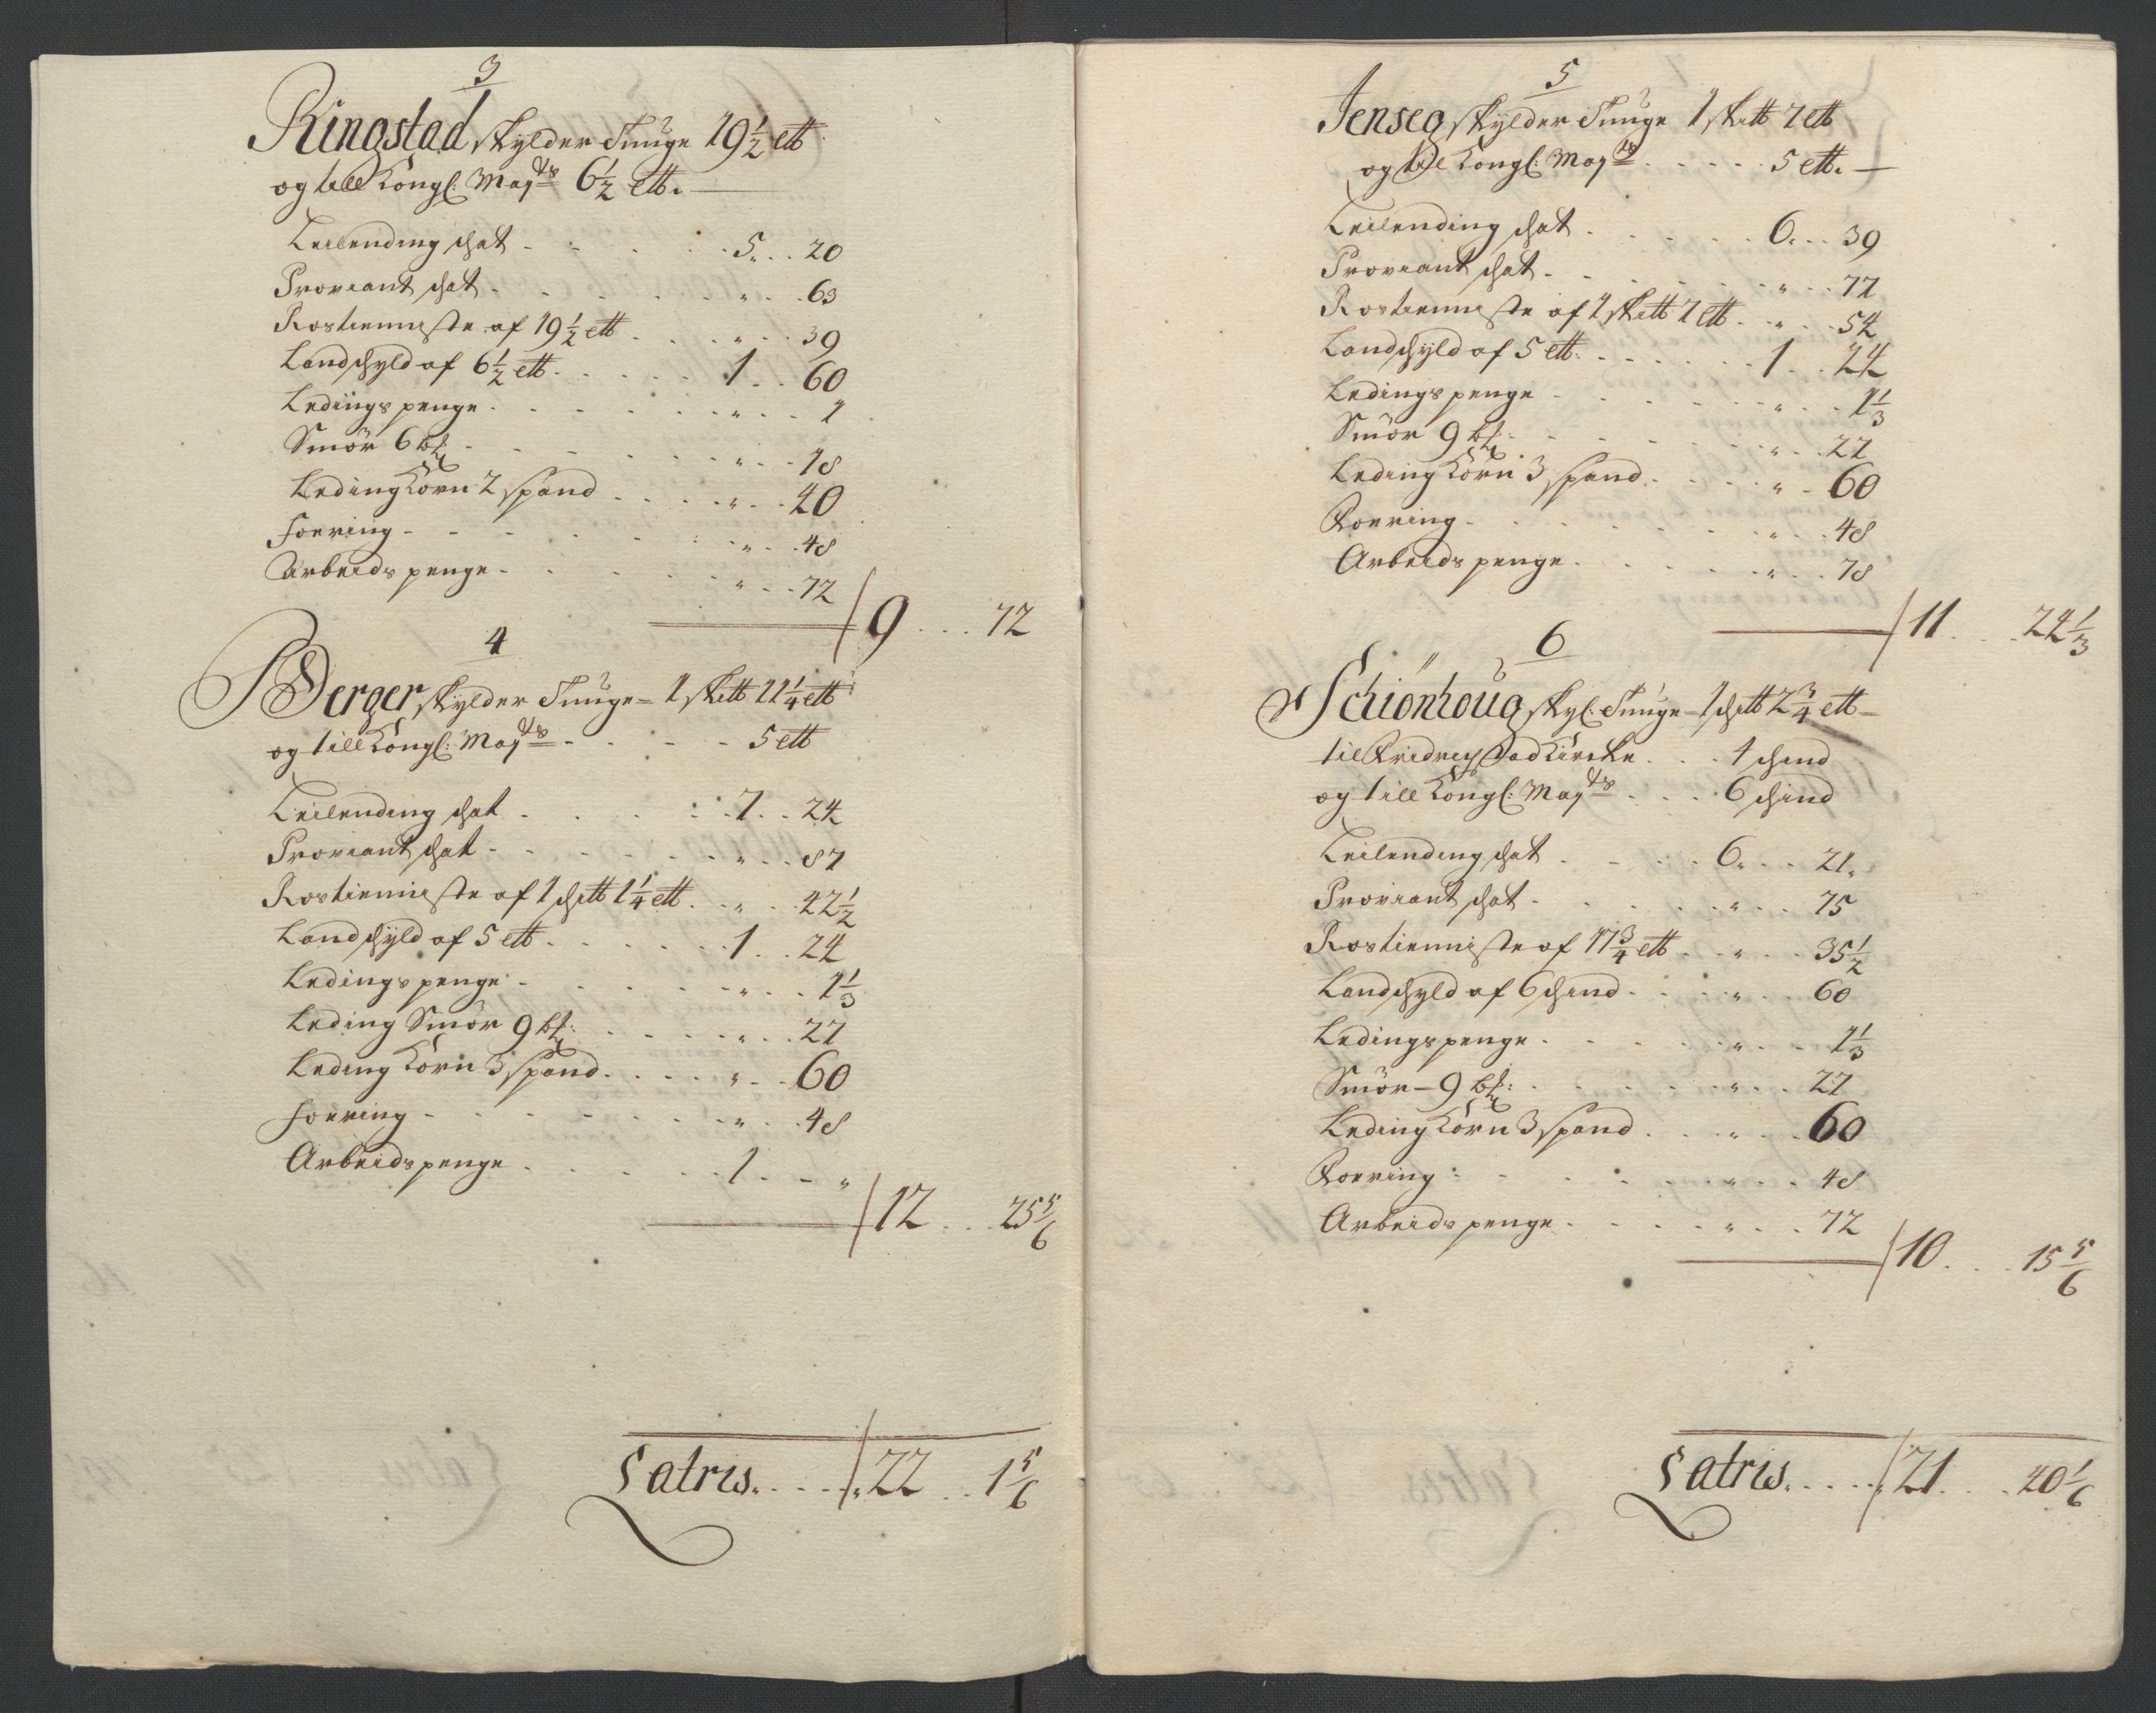 3
Ringstad skylder Tunge 19½ ℔
og till Kongl: Mayts 6½ ℔. —
Leilending schat - - - 5. . . 20
Proviant schat - - - " . . 63
Rostienniste af 19½ ℔ . . . " . . 39
Landschyld af 6½ ℔ . . . 1 . . 60
Ledings penge . . . " . . 1
Smör 6 ℔ . . . " . . 18
Leding Korn 2 spand . . . " . . 40
foering - - - " . . 48
Arbeids penge - - - " . . 72
9 . . . 72
4
Berger skylder Tunge = 1 sk℔ 11¼ ℔
og till Kongl: Mayts - - - 5 ℔
Leilending schat . . . 7 . . 24
Proviant schat - - - " . . 87
Rostienniste af 1 sch℔ 1¼ ℔ . . " . . 42½
Landschyld af 5 ℔ . . . 1 . . 24
Ledings penge - - - " . . 1⅓
Leding Smör 9 ℔: . . . " . . 27
Leding Korn 3 spand . . . " . . 60
foering - - - " . . 48
Arbeids penge . . . 1 . - "
12 . . . 25⅚
Latris . . . . 22 . . 1⅚
5
Jenseg skylder Tunge 1 sk℔ 7 ℔
og till Kongl: Mayts . . . . 5 ℔. —
Leilending schat . . . 6. . . 39
Proviant schat . . . " . . 77
Rostienniste af 1 sk℔ 7 ℔ . . " . . 54
Landschyld af 5 ℔. . . . 1 . . 24
Ledings penge - - - " . . 1⅓
Smör 9 ℔: - - - " . . 27
Leding Korn 3 spand . . . " . 60
Foering . . . " . . 48
Arbeids penge . . . " . . 78
11 . . . 24⅓
6
Schiönhoug skyl: Tunge - 1 sch℔ 2¾ ℔ -
til Fridrichstad Kircke . . . 1 schind
og till Kongl: Mayts . . . 6 schind
Leilending schat . . . 6. . . 21.
Proviant schat . . . " . . 75
Rostienniste af 17¾ ℔ . . " . . 35½
Landschyld af 6 schind . . . " . . 60
Ledings penge . . . " . . 1⅓
Smör - 9 ℔: . . . " . . 27
Leding Korn 3 spand . . . " . . 60
Foering . . . " . . 48
Arbeids penge . . . " . . 72
10 . . . 15⅚
Latris . . . . 21 . . . 40⅙